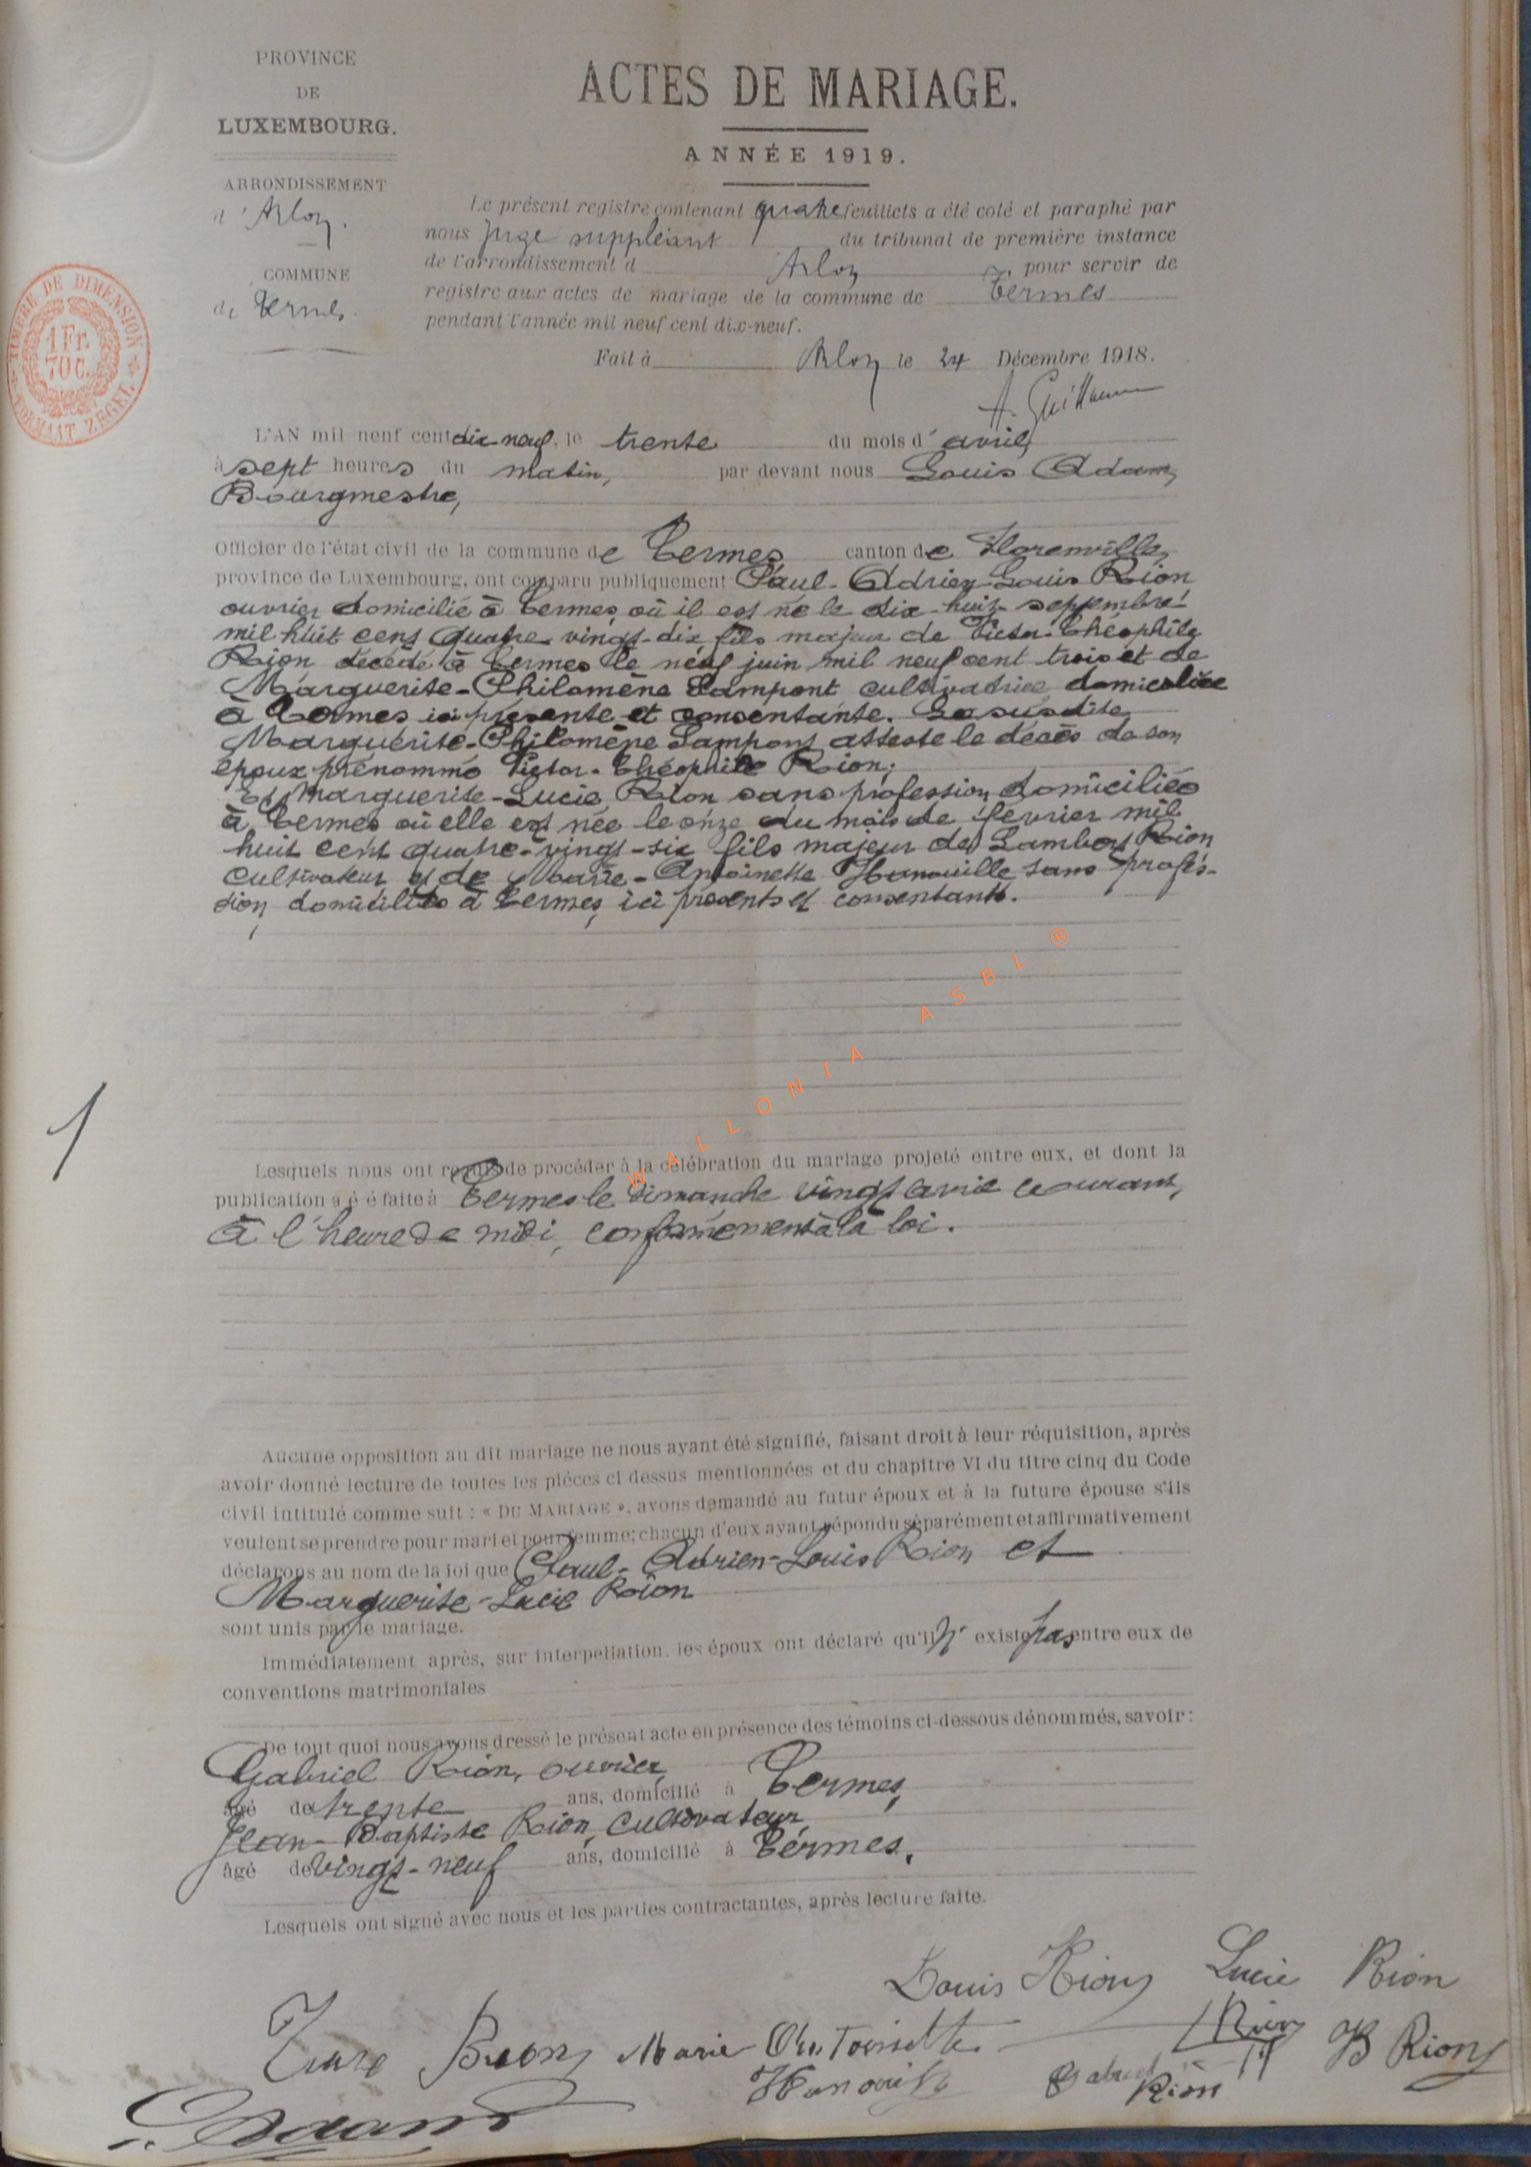 PROVINCE
DE
LUXEMBOURG.
ARRONDISSEMENT
d'Arlon.
COMMUNE
de Termes.
TIMBRE DE DIMENSION
1 Fr.
70 C.
FORMAAT ZEGEL
ACTES DE MARIAGE.
ANNÉE 1919.
Le présent registre contenant quatre feuillets a été coté et paraphé par
nous juge suppléant du tribunal de première instance
de l'arrondissement d Arlon, pour servir de
registre aux actes de mariage de la commune de Termes
pendant l'année mil neuf cent dix-neuf.
Fait à Arlon le 24 Décembre 1918.
A. Guillaume
L'AN mil neuf cent dix-neuf, le trente du mois d'avril
à sept heures du matin, par devant nous Louis Adam,
Bourgmestre,
Officier de l'état civil de la commune de Termes canton de Florenville,
province de Luxembourg, ont comparu publiquement Paul-Adrien-Louis Rion
ouvrier domicilié à Termes, où il est né le dix-huit septembre
mil huit cent quatre-vingt-dix fils majeur de Victor-Théophile
Rion décédé à Termes le neuf juin mil neuf cent trois et de
Marguerite-Philomène Lampont cultivatrice domiciliée
à Termes ici présente et consentante. La susdite
Marguerite-Philomène Lampont atteste le décès de son
époux prénommé Victor-Théophile Rion;
Et Marguerite-Lucie Rion sans profession domiciliée
à Termes où elle est née le onze du mois de février mil
huit cent quatre-vingt-six fils majeur de Lambert Rion
cultivateur et de Marie-Antoinette Hanouille sans profes-
sion, domiciliés à Termes, ici présents et consentants.
WALLONIA ASBL ®
1
Lesquels nous ont requis de procéder à la célébration du mariage projeté entre eux, et dont la
publication a é é faite à Termes le dimanche vingt avril courant,
à l'heure de midi, conformément à la loi.
Aucune opposition au dit mariage ne nous ayant été signifié, faisant droit à leur réquisition, après
avoir donné lecture de toutes les pièces ci dessus mentionnées et du chapitre VI du titre cinq du Code
civil intitulé comme suit : « DU MARIAGE », avons demandé au futur époux et à la future épouse s'ils
veulent se prendre pour mari et pour femme; chacun d'eux ayant répondu séparément et affirmativement
déclarons au nom de la loi que Paul-Adrien-Louis Rion et
Marguerite-Lucie Rion
sont unis par le mariage.
Immédiatement après, sur interpellation, les époux ont déclaré qu'il n'existe pas entre eux de
conventions matrimoniales
De tout quoi nous avons dressé le présent acte en présence des témoins ci-dessous dénommés, savoir :
Gabriel Rion, ouvrier,
âgé de trente ans, domicilié à Termes,
Jean-Baptiste Rion, cultivateur,
âgé de vingt-neuf ans, domicilié à Termes.
Lesquels ont signé avec nous et les parties contractantes, après lecture faite.
Louis Rion Lucie Rion
Marie Antoinette
Rion
JB Rion
Hanouille
Gabriel
Rion
L. Adam